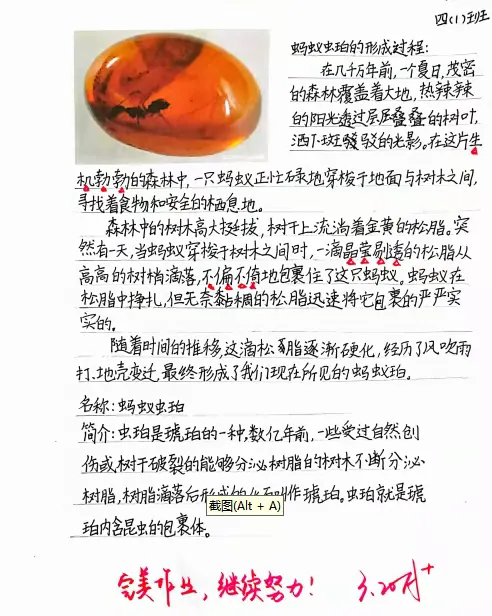 四(1)班
蚂蚁虫珀的形成过程:
在几千万年前,一个夏日,茂密
的森林覆盖着大地,热辣辣
的阳光透过层层叠叠的树叶,
洒下斑驳的光影。在这片生
机勃勃的森林中,一只蚂蚁正忙碌地穿梭于地面与树木之间,
寻找着食物和安全的栖息地。
森林中的树木高大挺拔,树干上流淌着金黄的松脂。突
然有一天,当蚂蚁穿梭于树木之间时,一滴晶莹剔透的松脂从
高高的树梢滴落,不偏不倚地包裹住了这只蚂蚁。蚂蚁在
松脂中挣扎,但无奈黏稠的松脂迅速将它包裹的严严实
实的。
随着时间的推移,这滴松脂逐渐硬化,经历了风吹雨
打、地壳变迁,最终形成了我们现在所见的蚂蚁珀。
名称:蚂蚁虫珀
简介:虫珀是琥珀的一种,数亿年前,一些受过自然创
伤或树干破裂的能够分泌树脂的树木不断分泌
树脂,树脂滴落后形成的化石叫作琥珀。虫珀就是琥
截图(Alt + A)
珀内含昆虫的包裹体。
完美作业,继续努力!